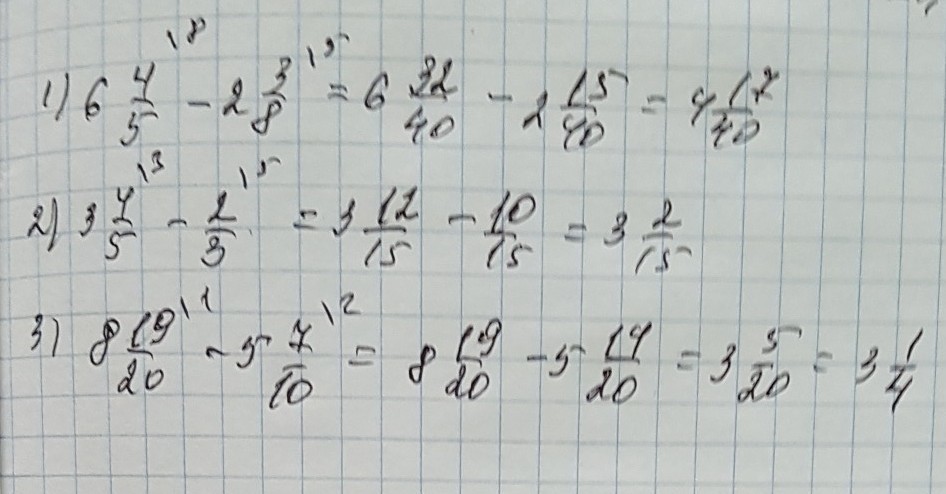 1) 6 4/5 \8 - 2 3/8 \5 = 6 32/40 - 2 15/40 = 4 17/40
2) 3 4/5 \3 - 2/3 \5 = 3 12/15 - 10/15 = 3 2/15
3) 8 19/20 \1 - 5 7/10 \2 = 8 19/20 - 5 14/20 = 3 5/20 = 3 1/4